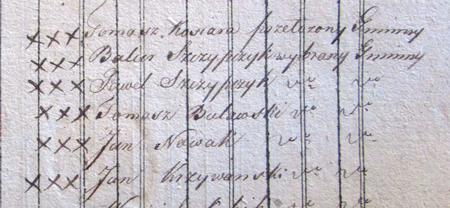 xxx Tomasz Kosiara przełożony Gminny
xxx Szczypczyk wybrany Gminny
xxx Paweł Szczypczyk
xxx Tomasz Buławski
xxx Jan Nowak
xxx Jan Krzywanski